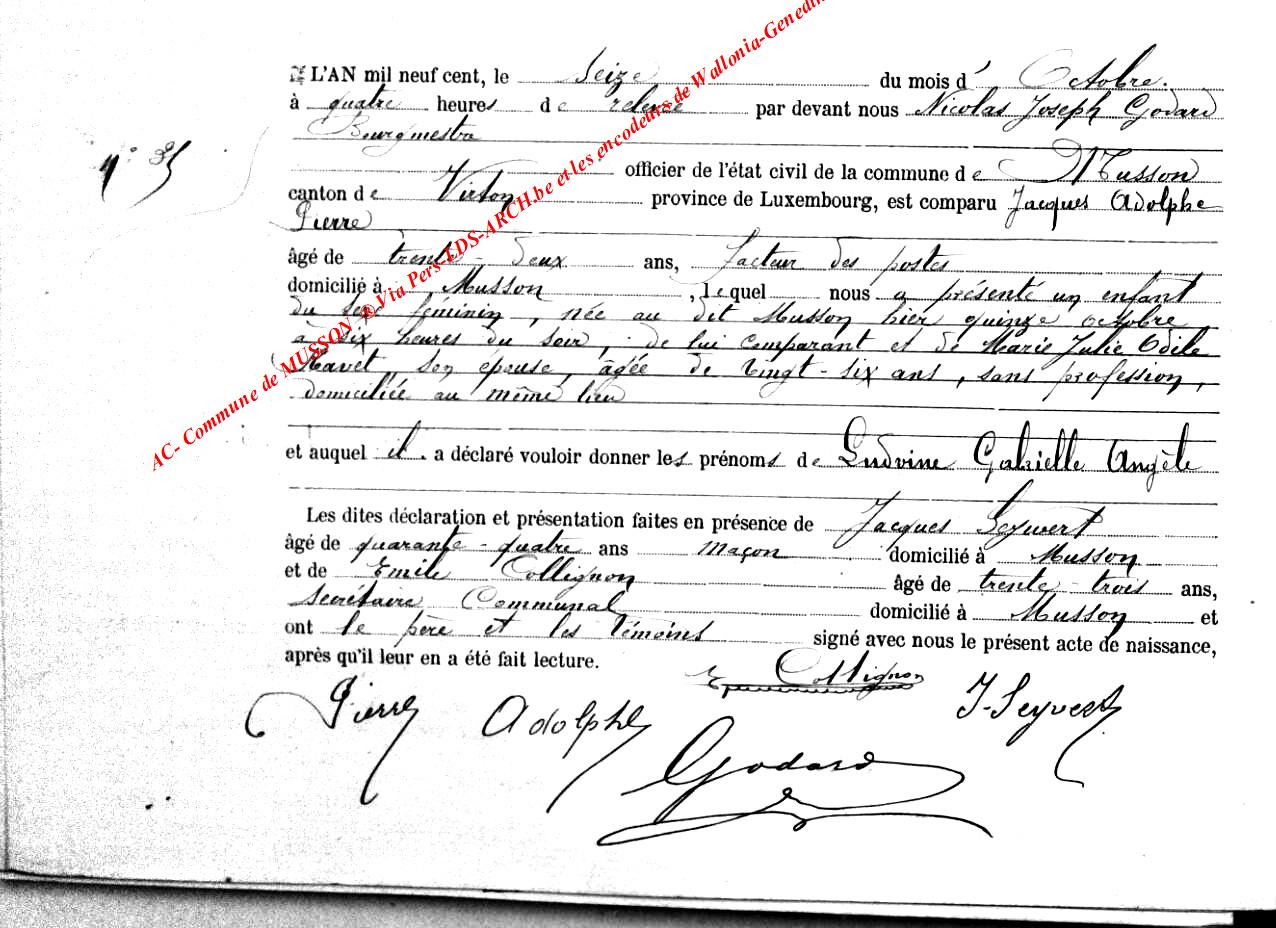 L'AN mil neuf cent, le Seize du mois d' Octobre.
à quatre heures de relevée par devant nous Nicolas Joseph Godard
Bourgmestre
officier de l'état civil de la commune de Musson
canton de Virton province de Luxembourg, est comparu Jacques Adolphe
Pierre
âgé de trente-deux ans, facteur des postes
domicilié à Musson, lequel nous a présenté un enfant
du sexe féminin, née au dit Musson hier quinze octobre
à six heures du soir, de lui comparant et de Marie Julie Odile
son épouse, âgée de vingt-six ans, sans profession,
domiciliée au même lieu
et auquel il a déclaré vouloir donner les prénoms de Ludvine Gabrielle Angèle
Les dites déclaration et présentation faites en présence de Jacques Seyvert
âgé de quarante-quatre ans maçon domicilié à Musson
et de Emile Collignon âgé de trente-trois ans,
Secrétaire Communal domicilié à Musson et
ont le père et les témoins signé avec nous le présent acte de naissance,
après qu'il leur en a été fait lecture.
E Collignon
Pierre Adolphe J-Seyvert
Godard
AC- Commune de MUSSON ® Via Pers-LDS-ARCH.be et les encodeurs de Wallonia-Genedin